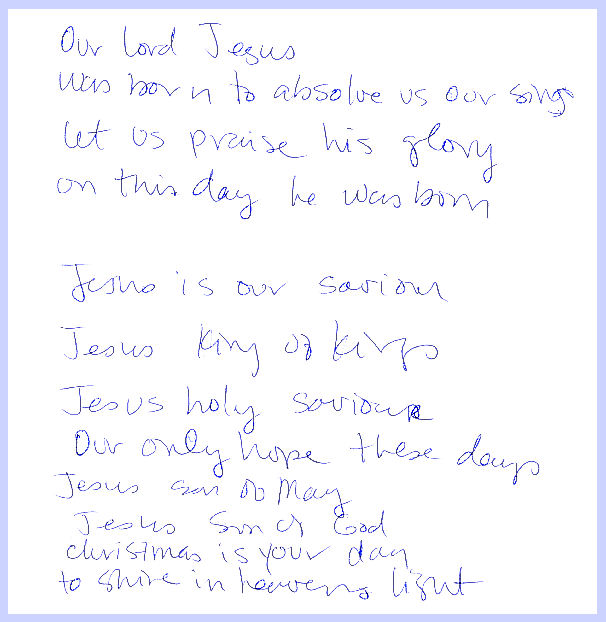 Our lord Jesus
was born to absolve us our sins
let us praise his glory
on this day he was born
Jesus is our saviour
Jesus King of kings
Jesus holy saviour
Our only hope these days
Jesus son of May
Jesus Son of God
christmas is your day
to shine in heavens light